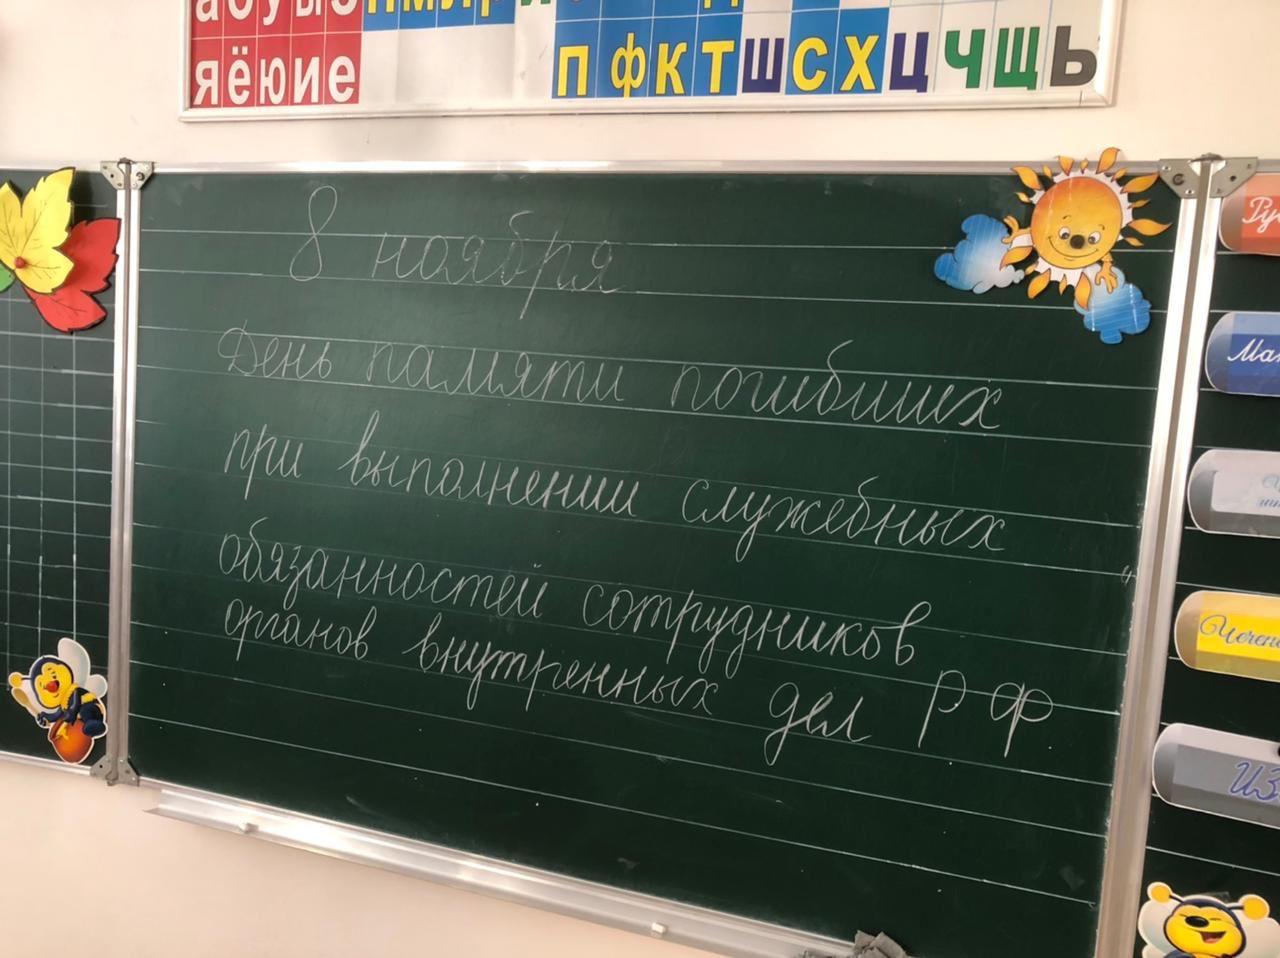 я ё ю и е
п ф к т ш с х ц ч щ ь
8 ноября
День памяти погибших
при выполнении служебных
обязанностей сотрудников
органов внутренных дел РФ